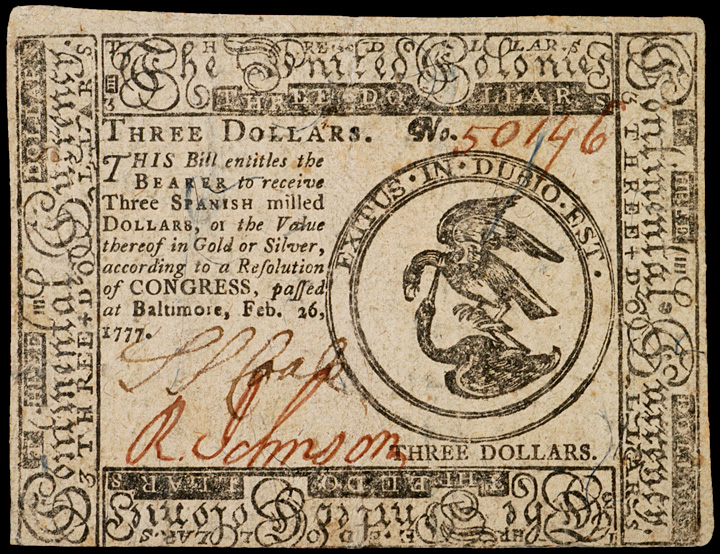 The United Colonies
THREE DOLLARS
THREE DOLLARS. No. 50196
THIS Bill entitles the
BEARER to receive
Three SPANISH milled
DOLLARS, or the Value
thereof in Gold or Silver,
according to a Reſolution
of CONGRESS, paſſed
at Baltimore, Feb. 26,
1777.
EXITUS · IN · DUBIO · EST ·
R. Johnson
THREE DOLLARS.
Continental Currency
3 THREE DOLLARS
Continental Currency
3 THREE DOLLARS
The United Colonies